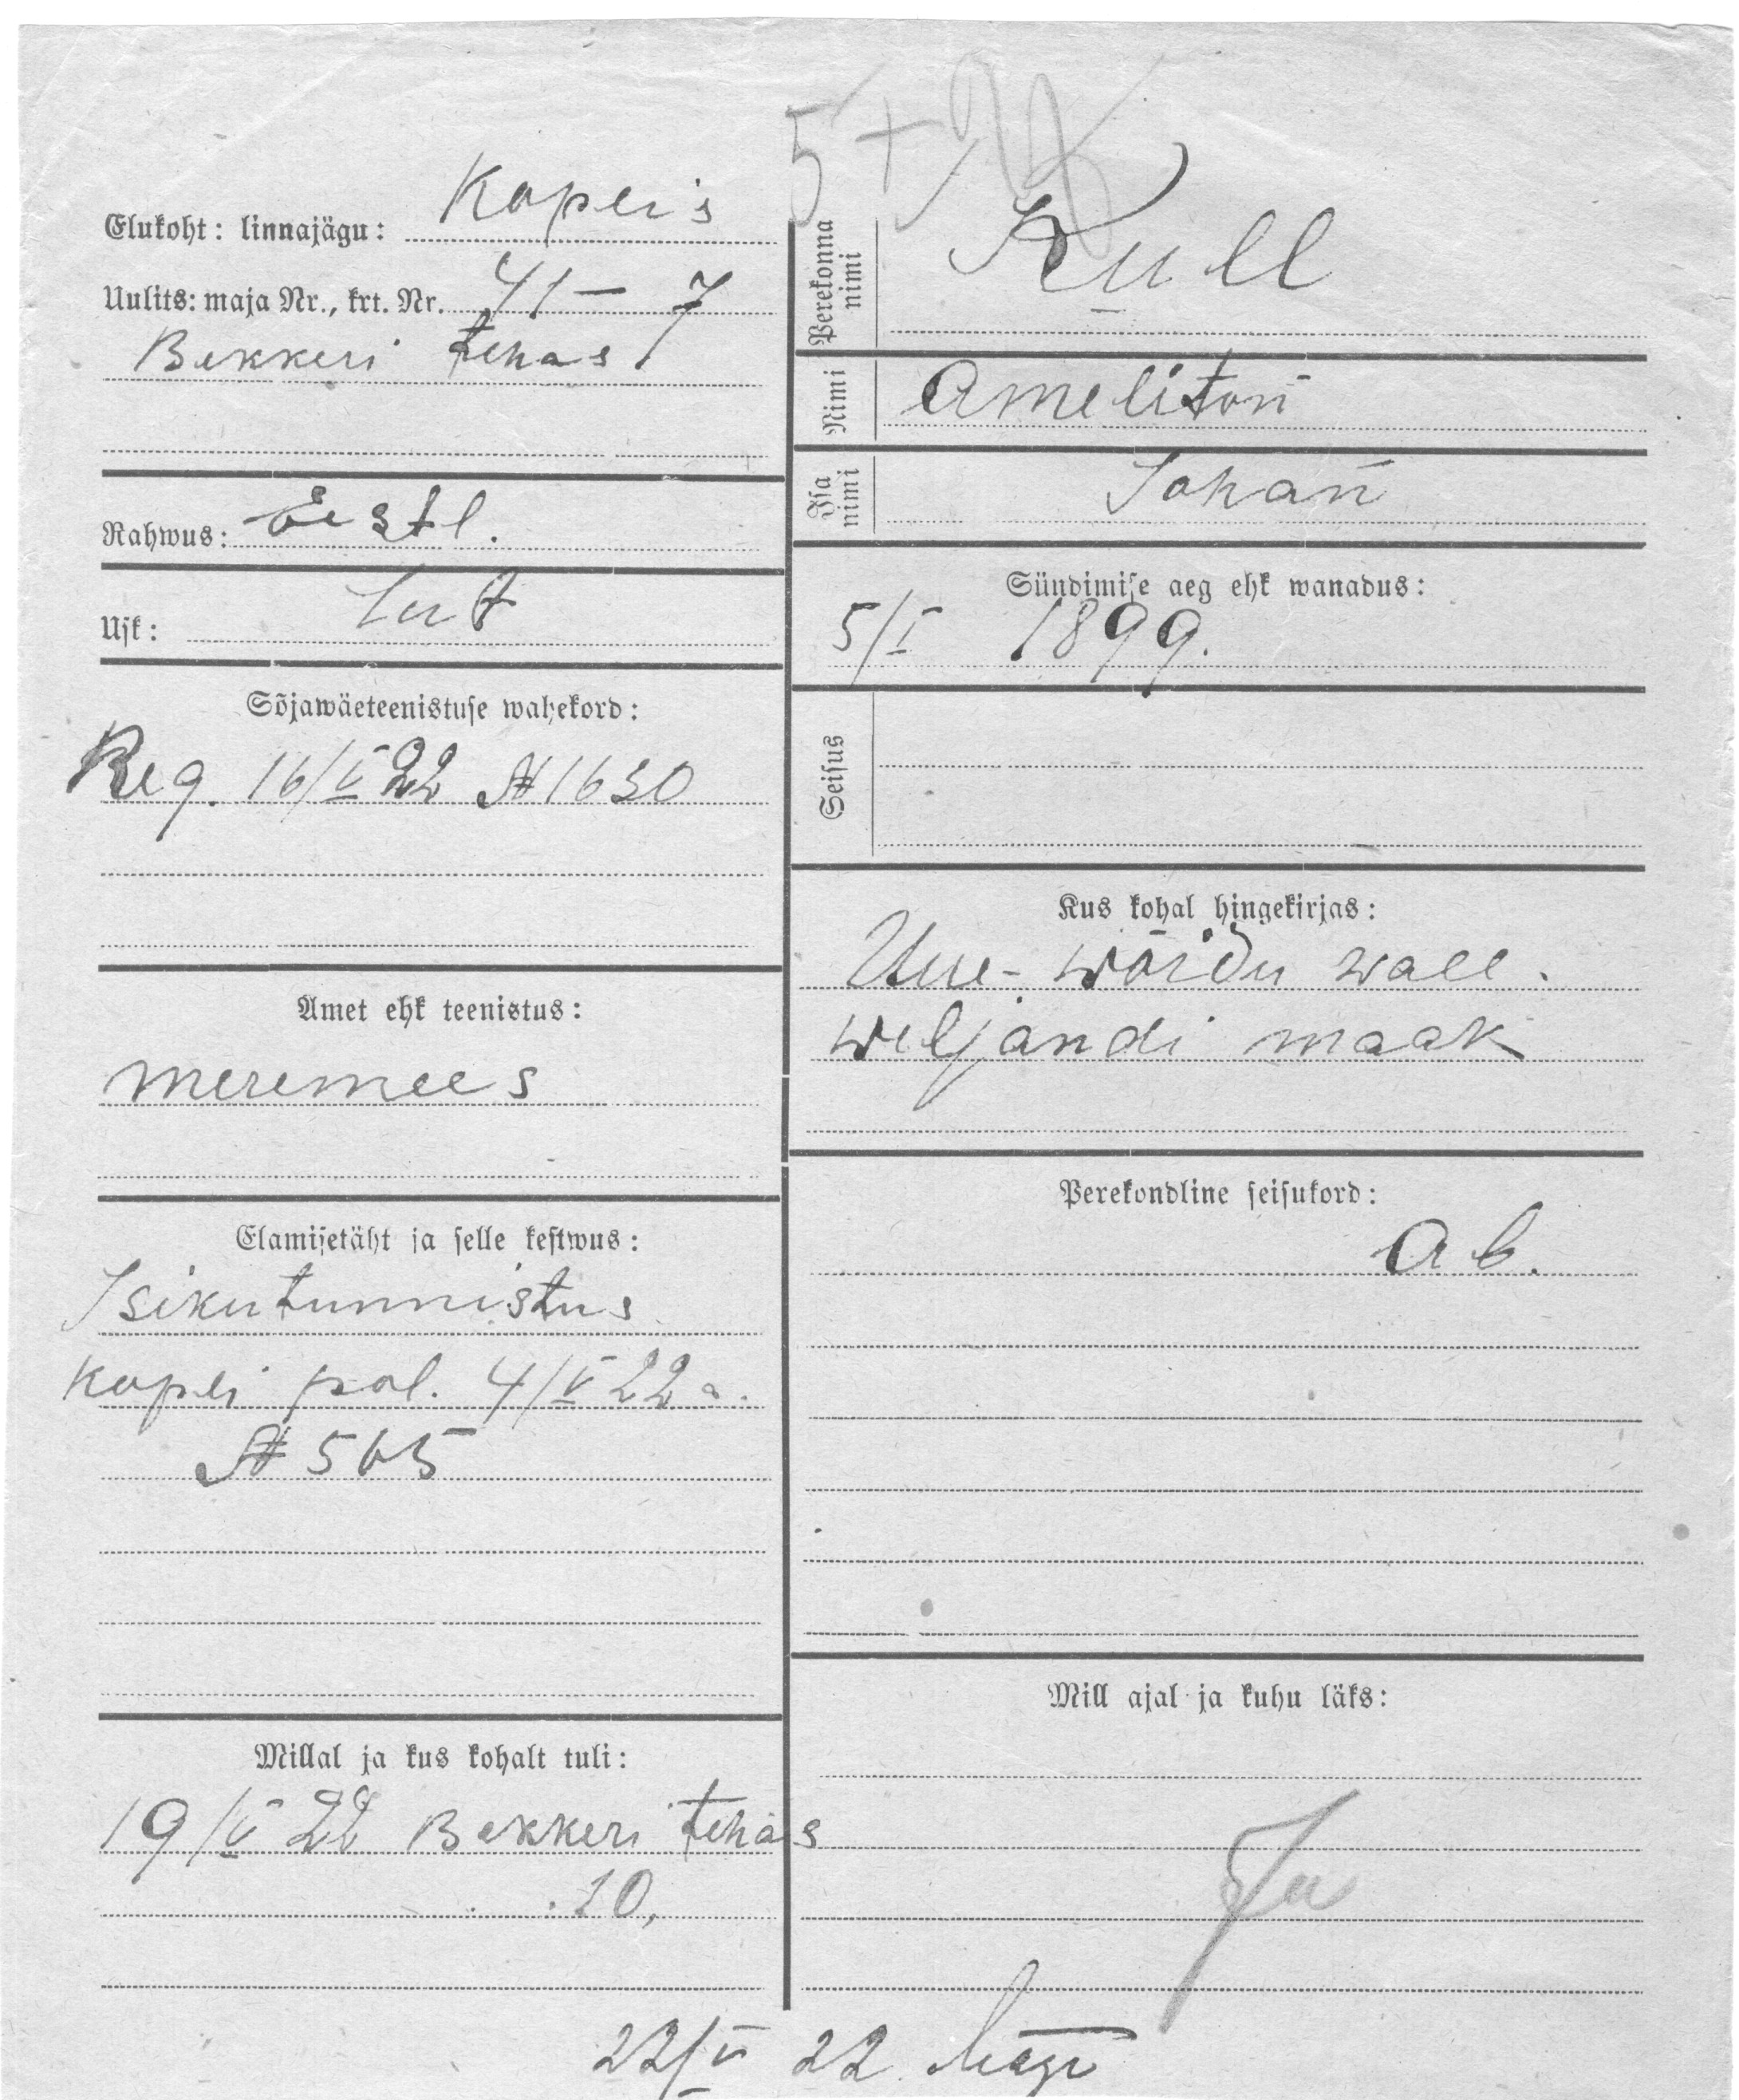 Elukoht: linnajägu: Kopeis
Uulits: maja Nr., krt. Nr. 41 – 7
Bekkeri tehas
Rahwus: Eestl.
Usk: Lut
Sõjawäeteenistuse wahekord:
Reg. 16/V 22 № 1630
Amet ehk teenistus:
meremees
Elamisetäht ja selle kestwus:
Isikutunnistus
Kopli pol. 4/V 22 a.
№ 565
Millal ja kus kohalt tuli:
19/V 22 Bekkeri tehas
10,
5 +
Perekonna nimi
Kull
Nimi
Ameliton
Isa nimi
Johan
Sündimise aeg ehk wanadus:
5/I 1899.
Seisus
Kus kohal hingekirjas:
Uue-wõidu wall.
Weljandi maak
Perekondline seisukord:
ab.
Mill ajal ja kuhu läks:
22/V 22